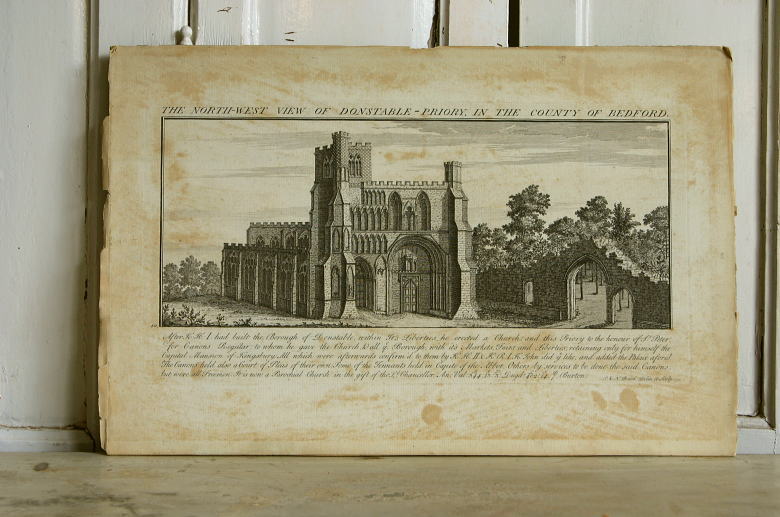 THE NORTH-WEST VIEW OF DONSTABLE-PRIORY, IN THE COUNTY OF BEDFORD.
After K. H. I. had built the Borough of Donstable, within it's Liberties, he erected a Church, and this Priory to the honour of St. Peter
for Canons Regular to whom he gave the Church & all ye Borough, with its Markets, Fairs and Liberties, retaining only for himself the
Capital Mansion of Kingsbury. All which were afterwards confirm'd to them by K. H. II. & K. R. I. K. John did ye like, and added the Palace afores'd
The Canons held also a Court of Pleas of their own. Some of the Tennants held in Capite of the Abbot, Others by services to be done the said Canons
but were all Freemen. It is now a Parochial Church in the gift of the Ld. Chancellor. An. Val. Dugd. Burton.
S. & N. Buck